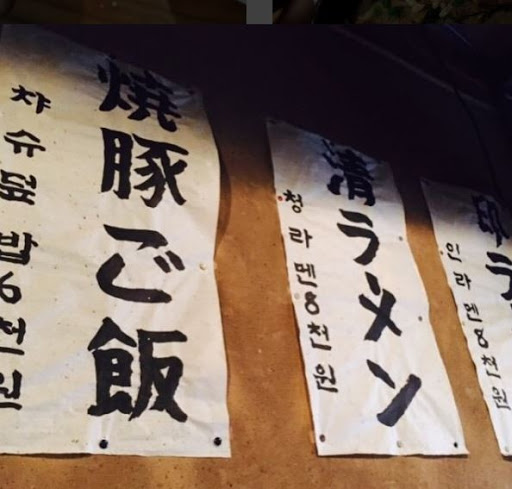 焼豚ご飯
챠슈덮밥6천원
清ラーメン
청라멘8천원
인라멘8천원